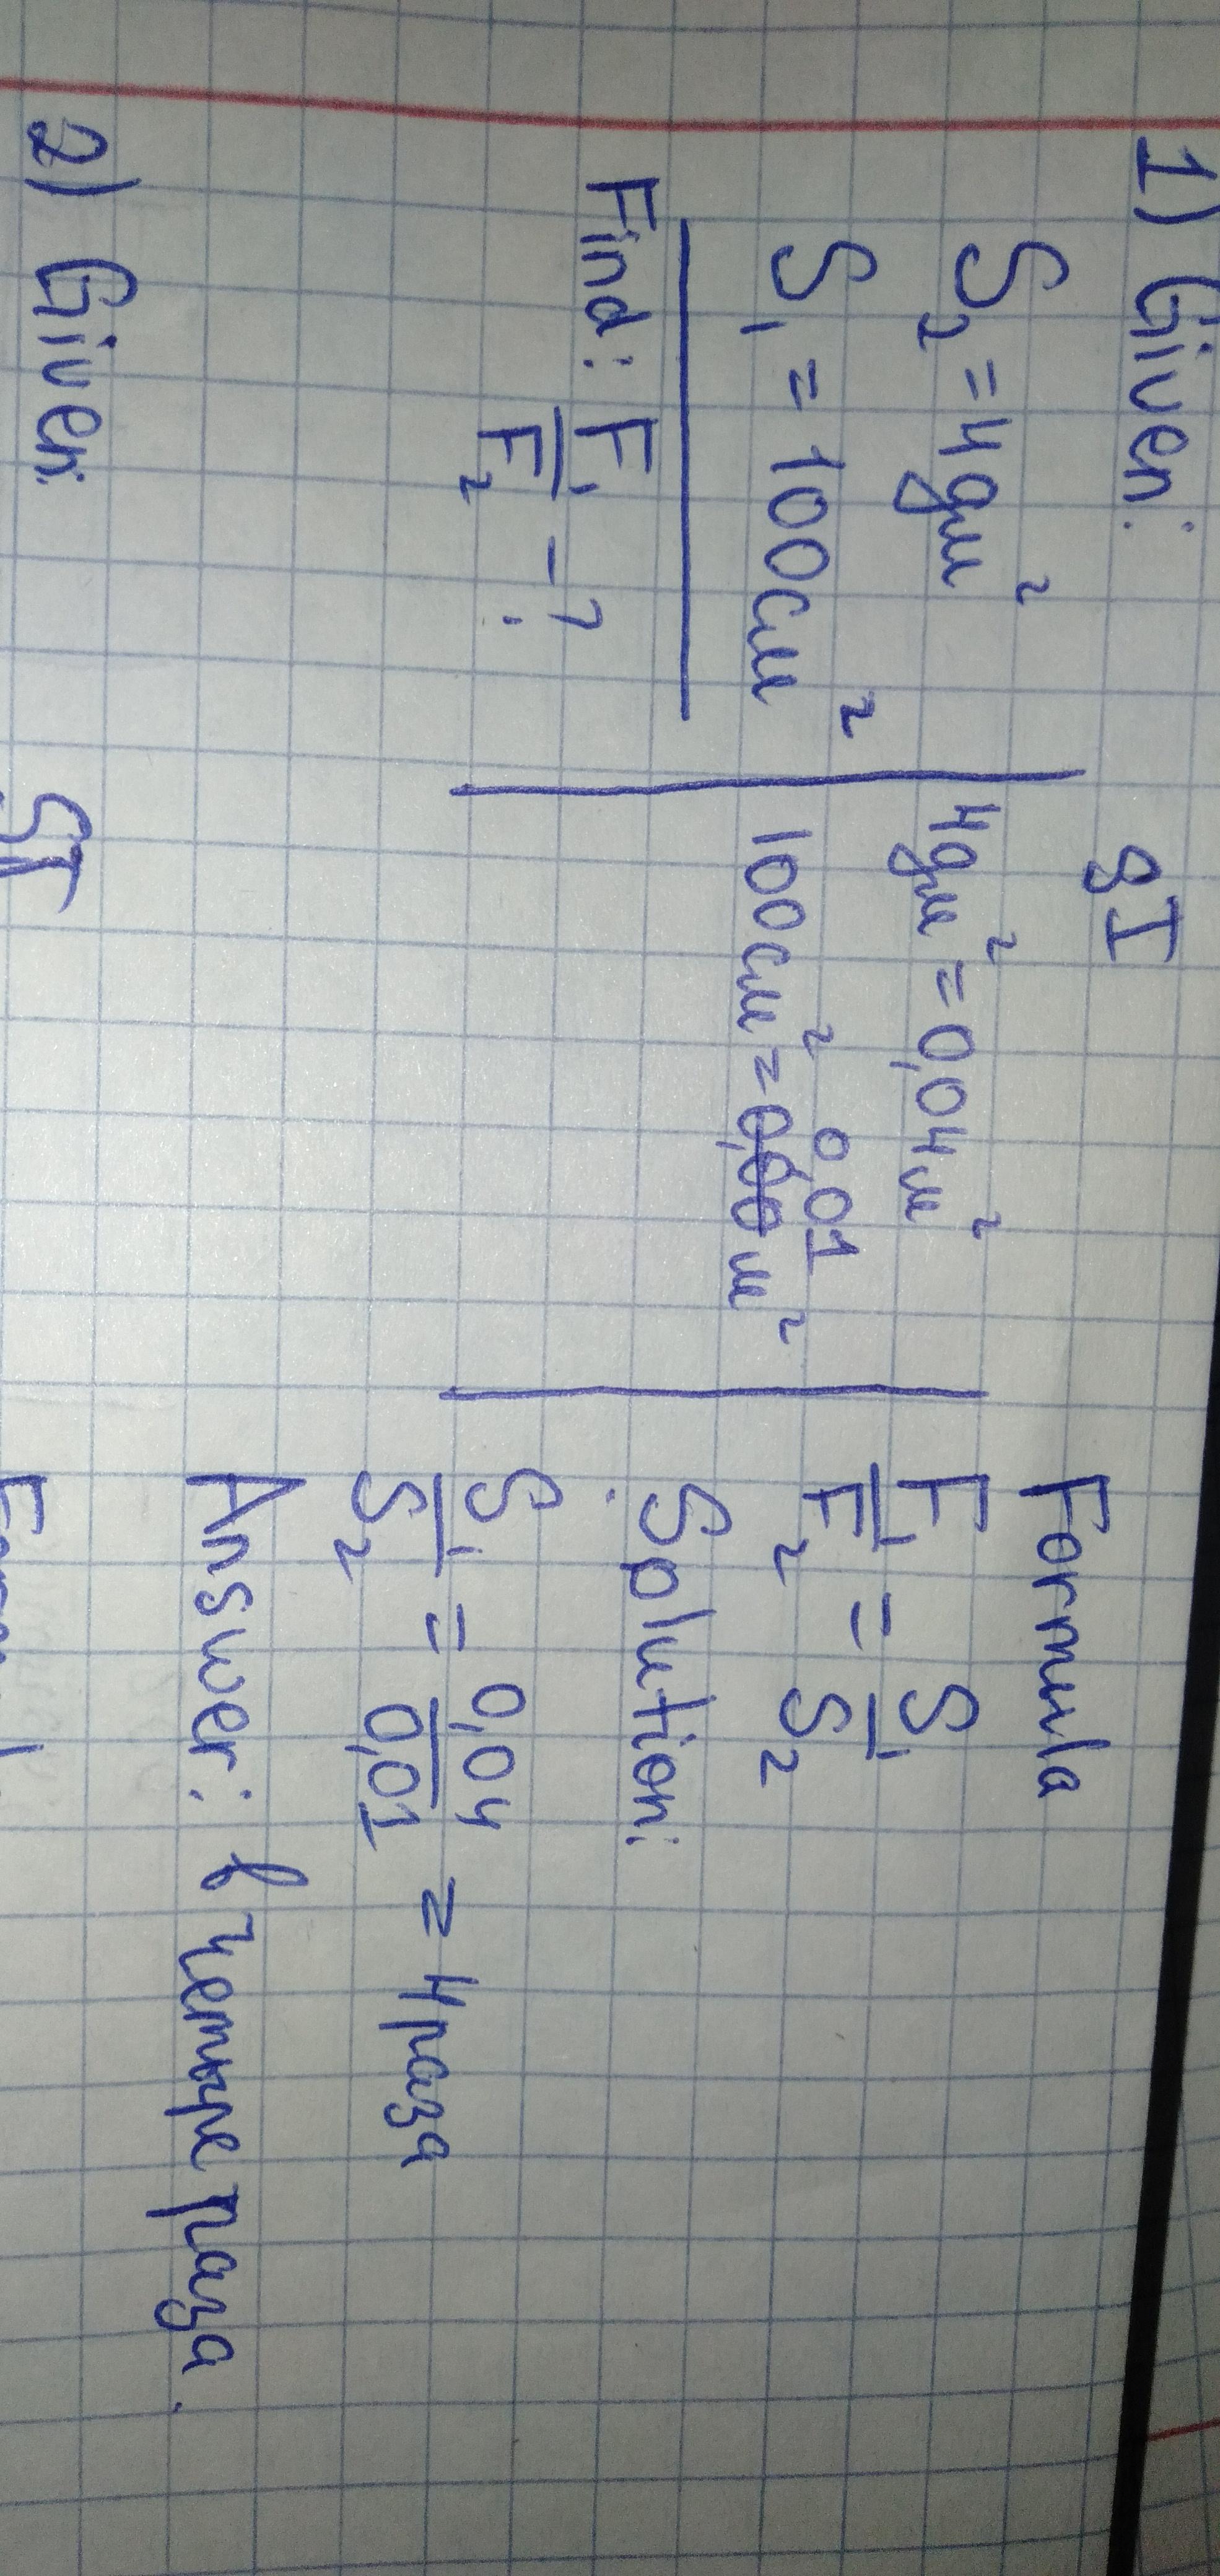 1) Given:
S₂ = 4дм²
S₁ = 100см²
Find: F₁/F₂ - ?
SI
4дм² = 0,04м²
0,01
100см² = 0,00 м²
Formula
F₁/F₂ = S₁/S₂
Solution:
S₁/S₂ = 0,04/0,01 = 4 раза
Answer: в четыре раза.
2) Given:
SI